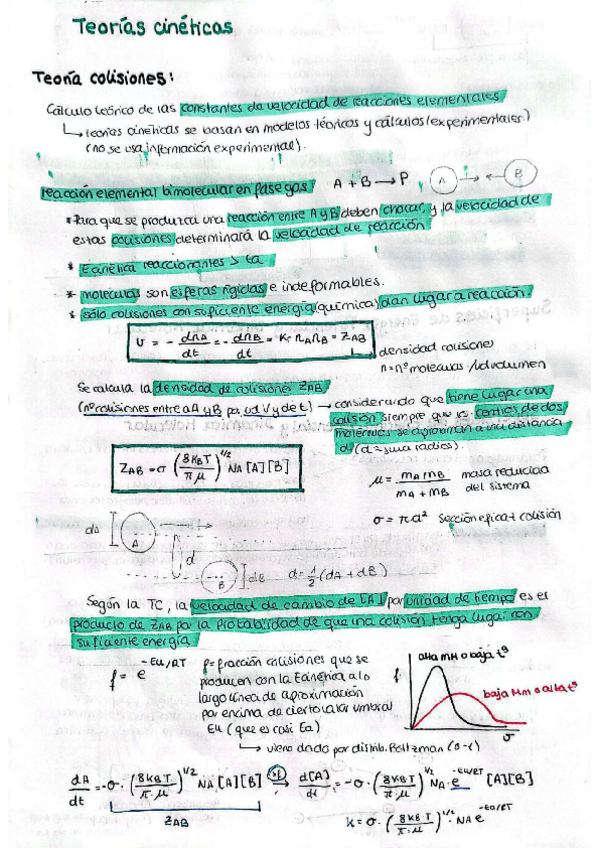 Teorías cinéticas
Teoría colisiones:
Cálculo teórico de las constantes de velocidad de reacciones elementales
↳ teorías cinéticas se basan en modelos teóricos y cálculos (experimentales)
(no se usa información experimental).
reacción elemental bimolecular en fase gas: A + B → P A B
* Para que se produzca una reacción entre A y B deben chocar, y la velocidad de
estas colisiones determinará la velocidad de reacción
* Ecinética reaccionantes > Ea
* moléculas son esferas rígidas e indeformables.
* sólo colisiones con suficiente energía (química) dan lugar a reacción.
v = - dnA/dt = - dnB/dt = Kr nA nB = ZAB
densidad colisiones
n = nº moléculas / ud volumen
Se calcula la densidad de colisiones ZAB
(nº colisiones entre A y B por ud V y de t) → considerando que tiene lugar una
colisión siempre que los centros de dos
moléculas se aproximan a una distancia
d (d = suma radios).
ZAB = σ (8kBT / πμ)^1/2 NA [A][B]
μ = mA mB / mA + mB masa reducida
del sistema
σ = πd² Sección eficaz colisión
dA A d B dB d = 1/2 (dA + dB)
Según la TC, la velocidad de cambio de [A] por unidad de tiempo es el
producto de ZAB por la probabilidad de que una colisión tenga lugar con
suficiente energía
f = e^-Eu/RT
f = fracción colisiones que se
producen con la Ecinética a lo
largo línea de aproximación
por encima de cierto valor umbral
Eu (que es casi Ea)
↳ viene dado por distrib. Boltzman
f alta mM o baja tª
baja Mm o alta tª
v
dA/dt = -σ · (8kBT / π·μ)^1/2 NA [A][B] → d[A]/dt = -σ · (8kBT / π·μ)^1/2 NA · e^-Eu/RT [A][B]
ZAB
k = σ · (8kB·T / π·μ)^1/2 · NA e^-Ea/RT